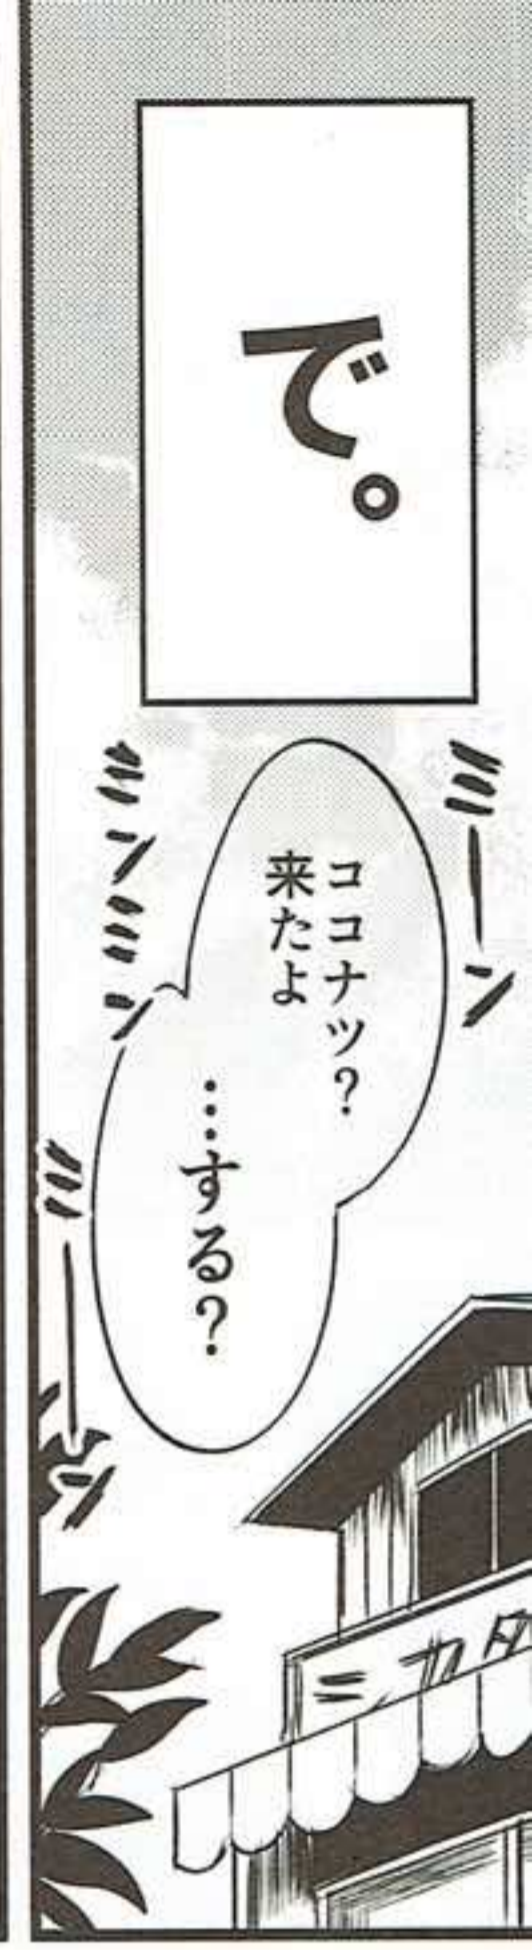 で。
ミーン
ココナツ？
来たよ
…する？
ミンミン
ミーン
シカダ